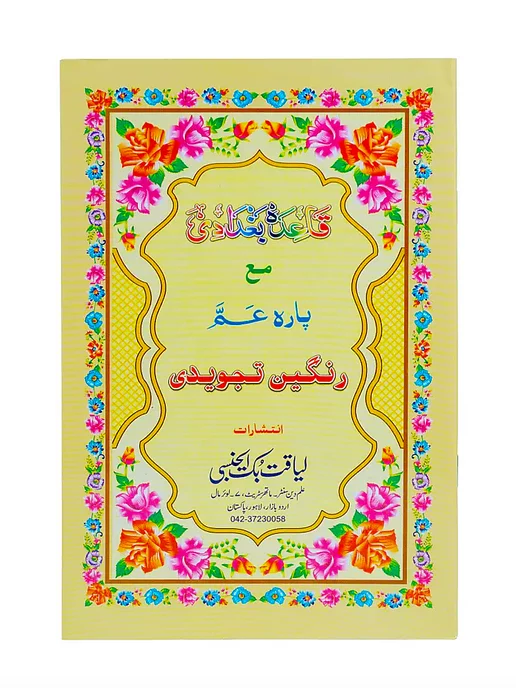 قَاعِدَہ بَغْدَادِیْ
مع
پارہ عَمَّ
رنگین تجویدی
انتشارات
لیاقت بک ایجنسی
علم دین سنٹر۔ ماتھر سٹریٹ، ۷۔لوئر مال
اردو بازار، لاہور، پاکستان
042-37230058